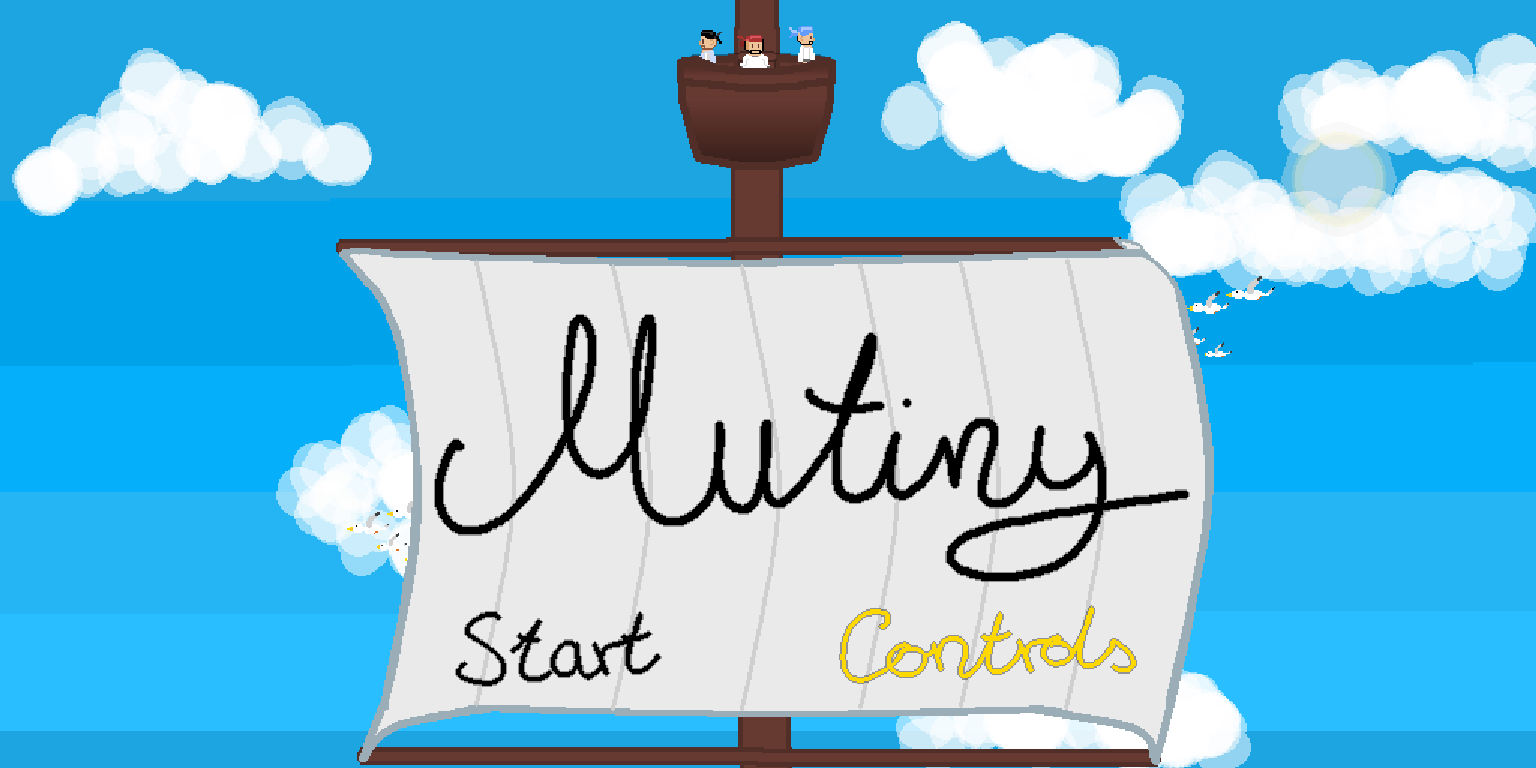 Mutiny
Start Controls